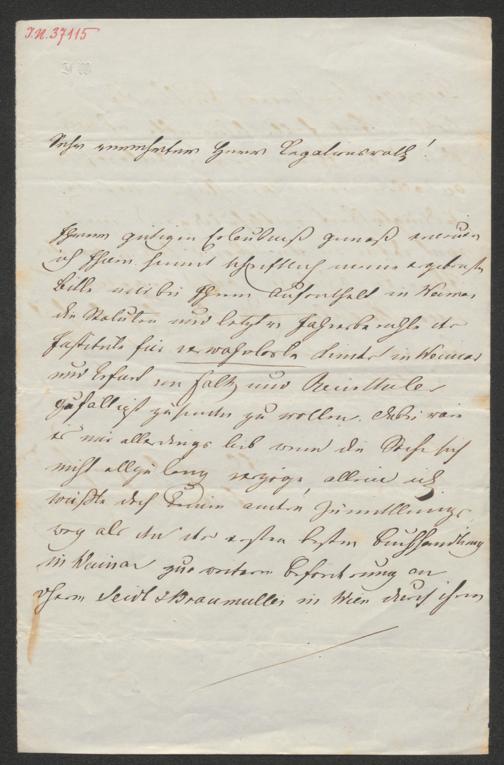 I.N. 37115
Sehr verehrter Herr Legationsrath!
Ihrer gütigen Erlaubniß gemäß erneuere
ich Ihnen hiemit schriftlich meine ergebenste
Bitte mir bei Ihrem Aufenthalt in Weimar
die Statuten und letzten Jahresberichte der
Institute für verwahrloste Kinder in Weimar
und Erfurt von Falk und Reinthaler
gefälligst zusenden zu wollen. Dabei wäre
es mir allerdings lieb wenn die Sache sich
nicht allzu lang verzöge, allein ich
wüßte doch keinen andern Zumittlungs
weg als den der ersten besten Buchhandlung
in Weimar zur weitern Beförderung an
Herrn Seidl & Braumüller in Wien durch ihren